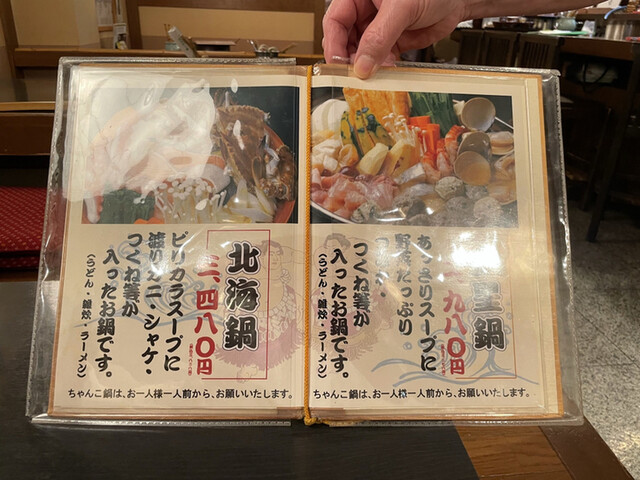 聖鍋
九八〇円
あっさりスープに
野菜たっぷり
つくね等が
入ったお鍋です。
(うどん・雑炊・ラーメン)
ちゃんこ鍋は、お一人様一人前から、お願いいたします。
北海鍋
三、四八〇円
ピリカラスープに
渡りガニ・シャケ・
つくね等が
入ったお鍋です。
(うどん・雑炊・ラーメン)
ちゃんこ鍋は、お一人様一人前から、お願いいたします。